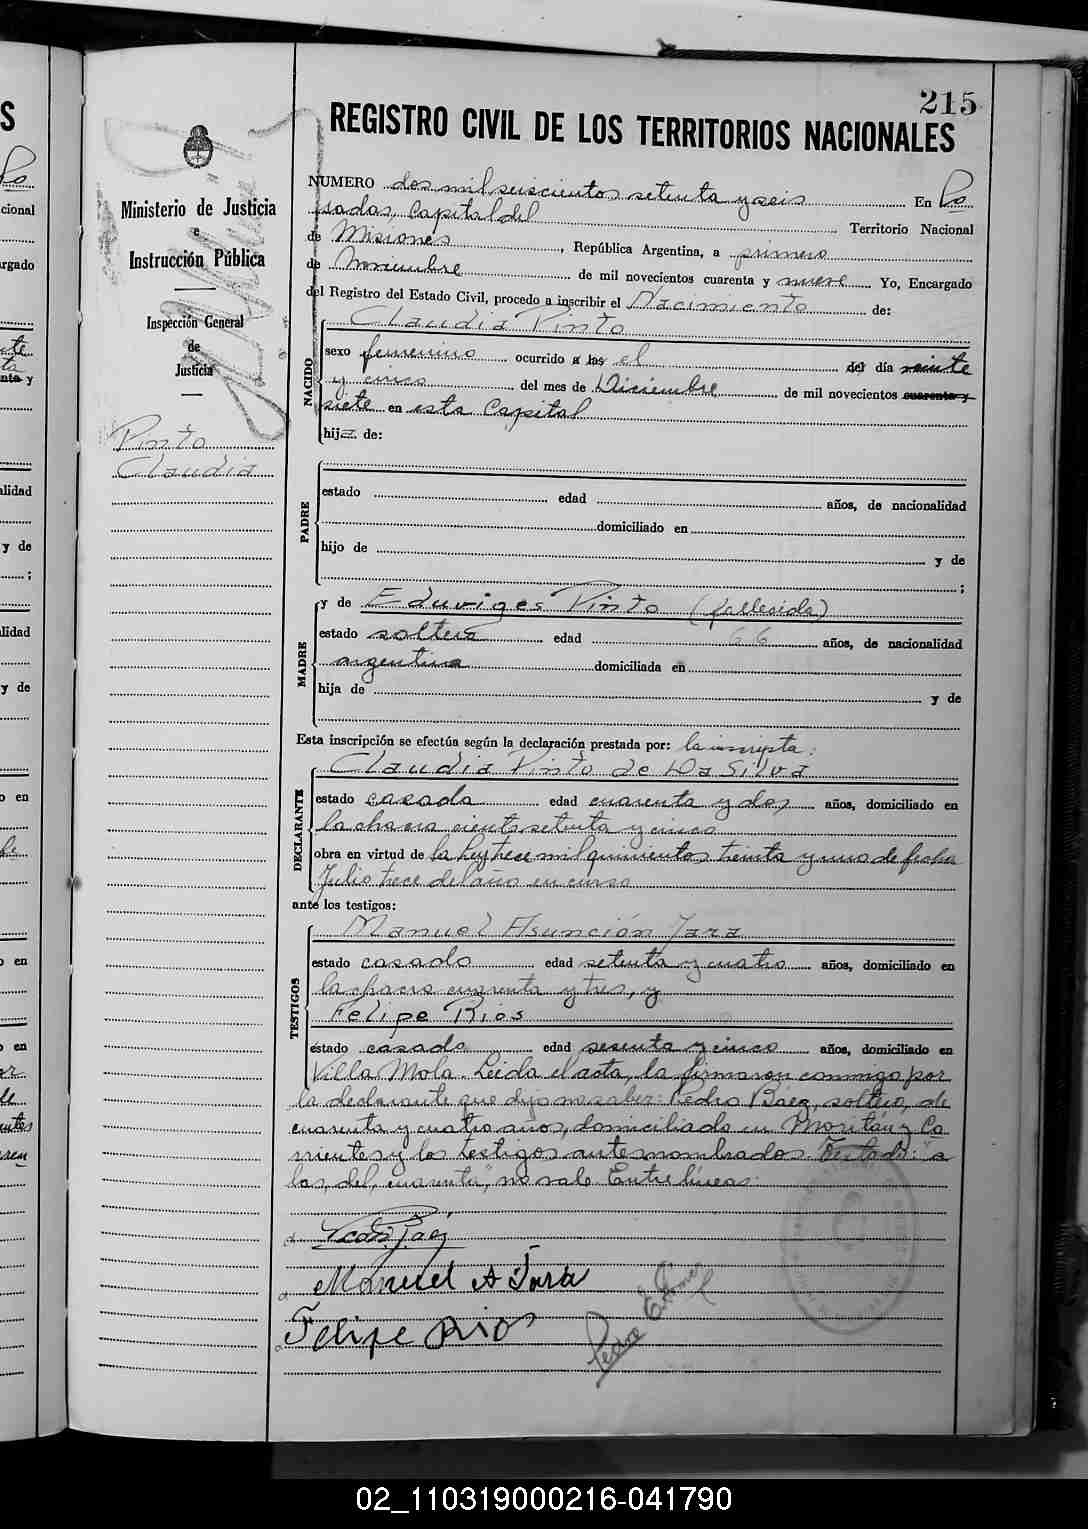 215
REGISTRO CIVIL DE LOS TERRITORIOS NACIONALES
Ministerio de Justicia
e
Instrucción Pública
Inspección General
de
Justicia
Pinto
Claudia
NUMERO dos mil seiscientos setenta y seis En Po
sadas Capital del Territorio Nacional
de Misiones, República Argentina, a primero
de Noviembre de mil novecientos cuarenta y nueve Yo, Encargado
del Registro del Estado Civil, procedo a inscribir el Nacimiento de:
Claudia Pinto
NACIDO
sexo femenino ocurrido a las el del día veinte
y cinco del mes de Diciembre de mil novecientos cuarenta y
siete en esta Capital
hija de:
PADRE
estado edad años, de nacionalidad
domiciliado en
hijo de y de
;
MADRE
y de Eduviges Pinto (fallesida)
estado soltera edad 66 años, de nacionalidad
argentina domiciliada en
hija de y de
Esta inscripción se efectúa según la declaración prestada por: la inscripta:
DECLARANTE
Claudia Pinto de Da Silva
estado casada edad cuarenta y dos años, domiciliado en
la chacra ciento setenta y cinco
obra en virtud de la Ley trece mil quinientos treinta y uno de fecha
Julio trece del año en curso
ante los testigos:
TESTIGOS
Manuel Asunción Jara
estado casado edad setenta y cuatro años, domiciliado en
la chacra cuarenta y tres, y
Felipe Rios
estado casado edad sesenta y cinco años, domiciliado en
Villa Mola. Leida el acta, la firmaron conmigo por
la declarante que dijo no saber: Pedro Baez, soltero, de
cuarenta y cuatro años, domiciliado en y Co
rrientes y los testigos antes nombrados. Testado: "a
las, del, cuarenta", no vale. Entre lineas:
Baez
Manuel A Jara
Felipe Rios
Pedro E. Gomez
02_110319000216-041790